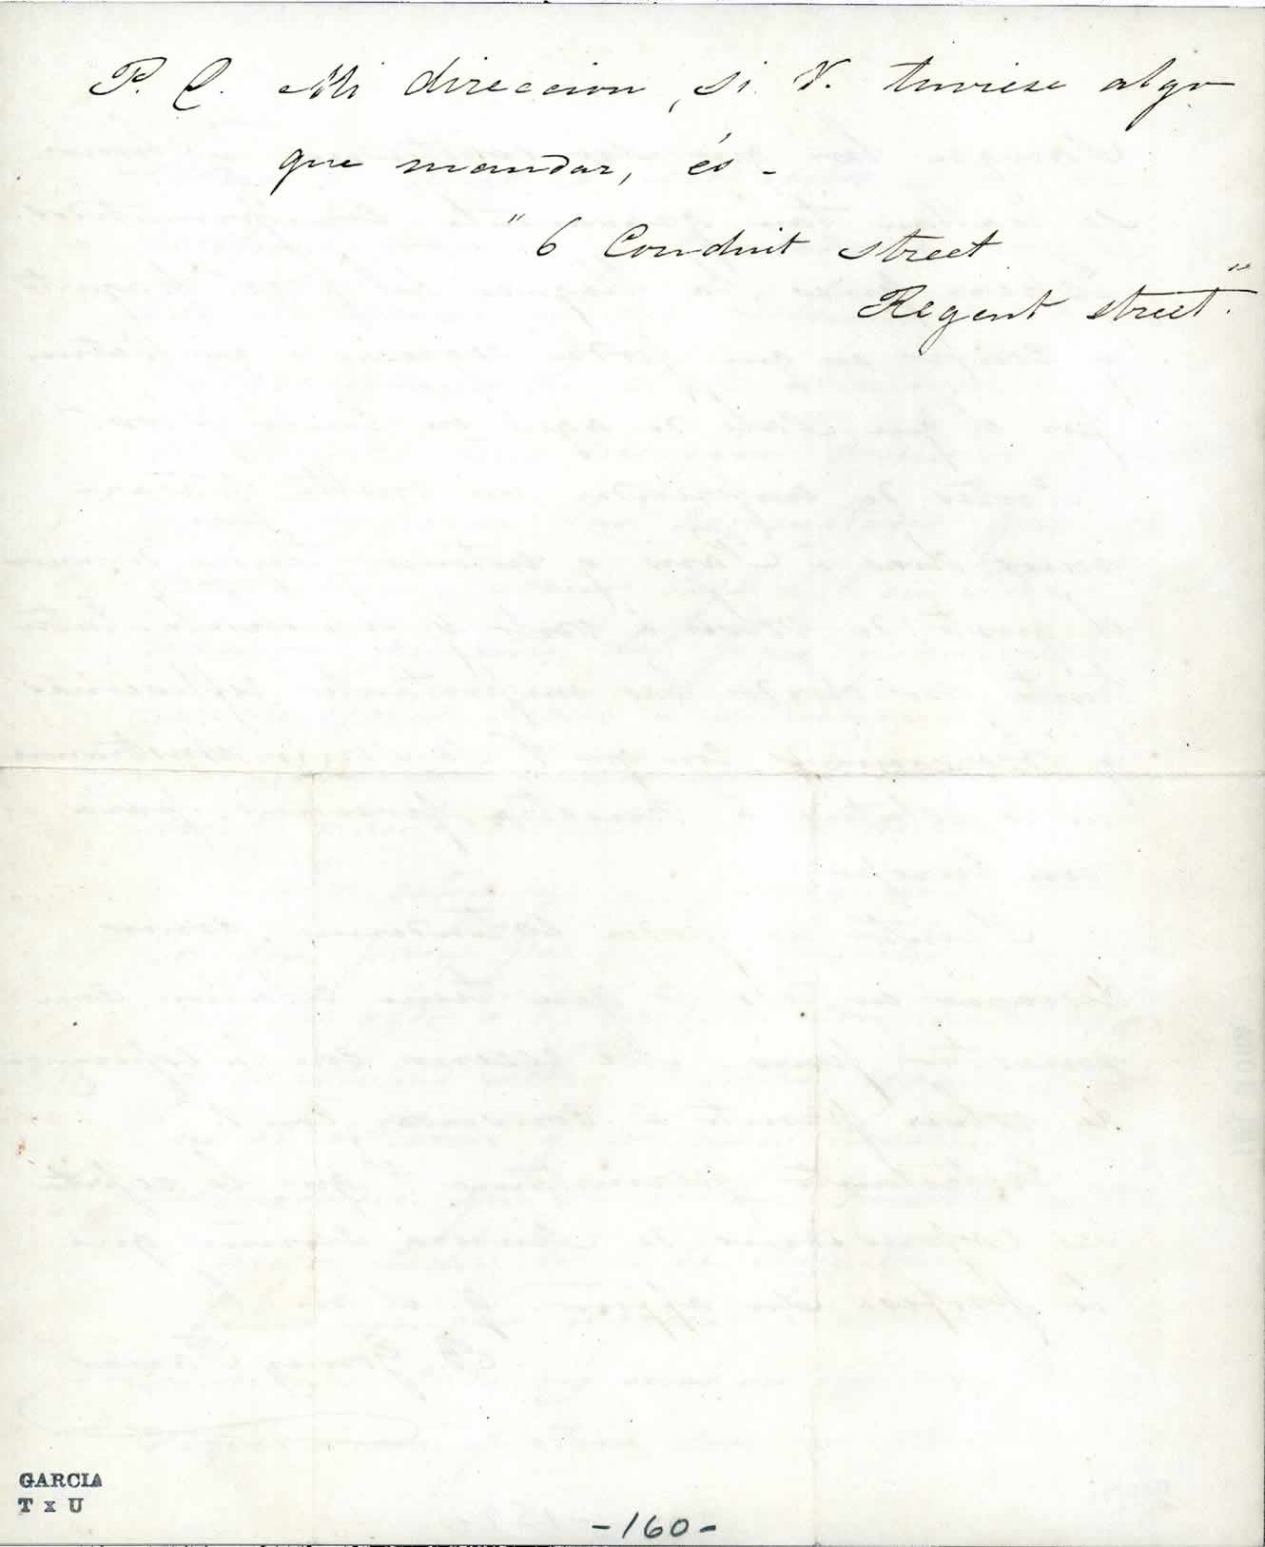 P. C. Mi direccion, si V. tuviese algo
que mandar, és -
" 6 Conduit street
Regent street."
GARCIA
T x U
-160-